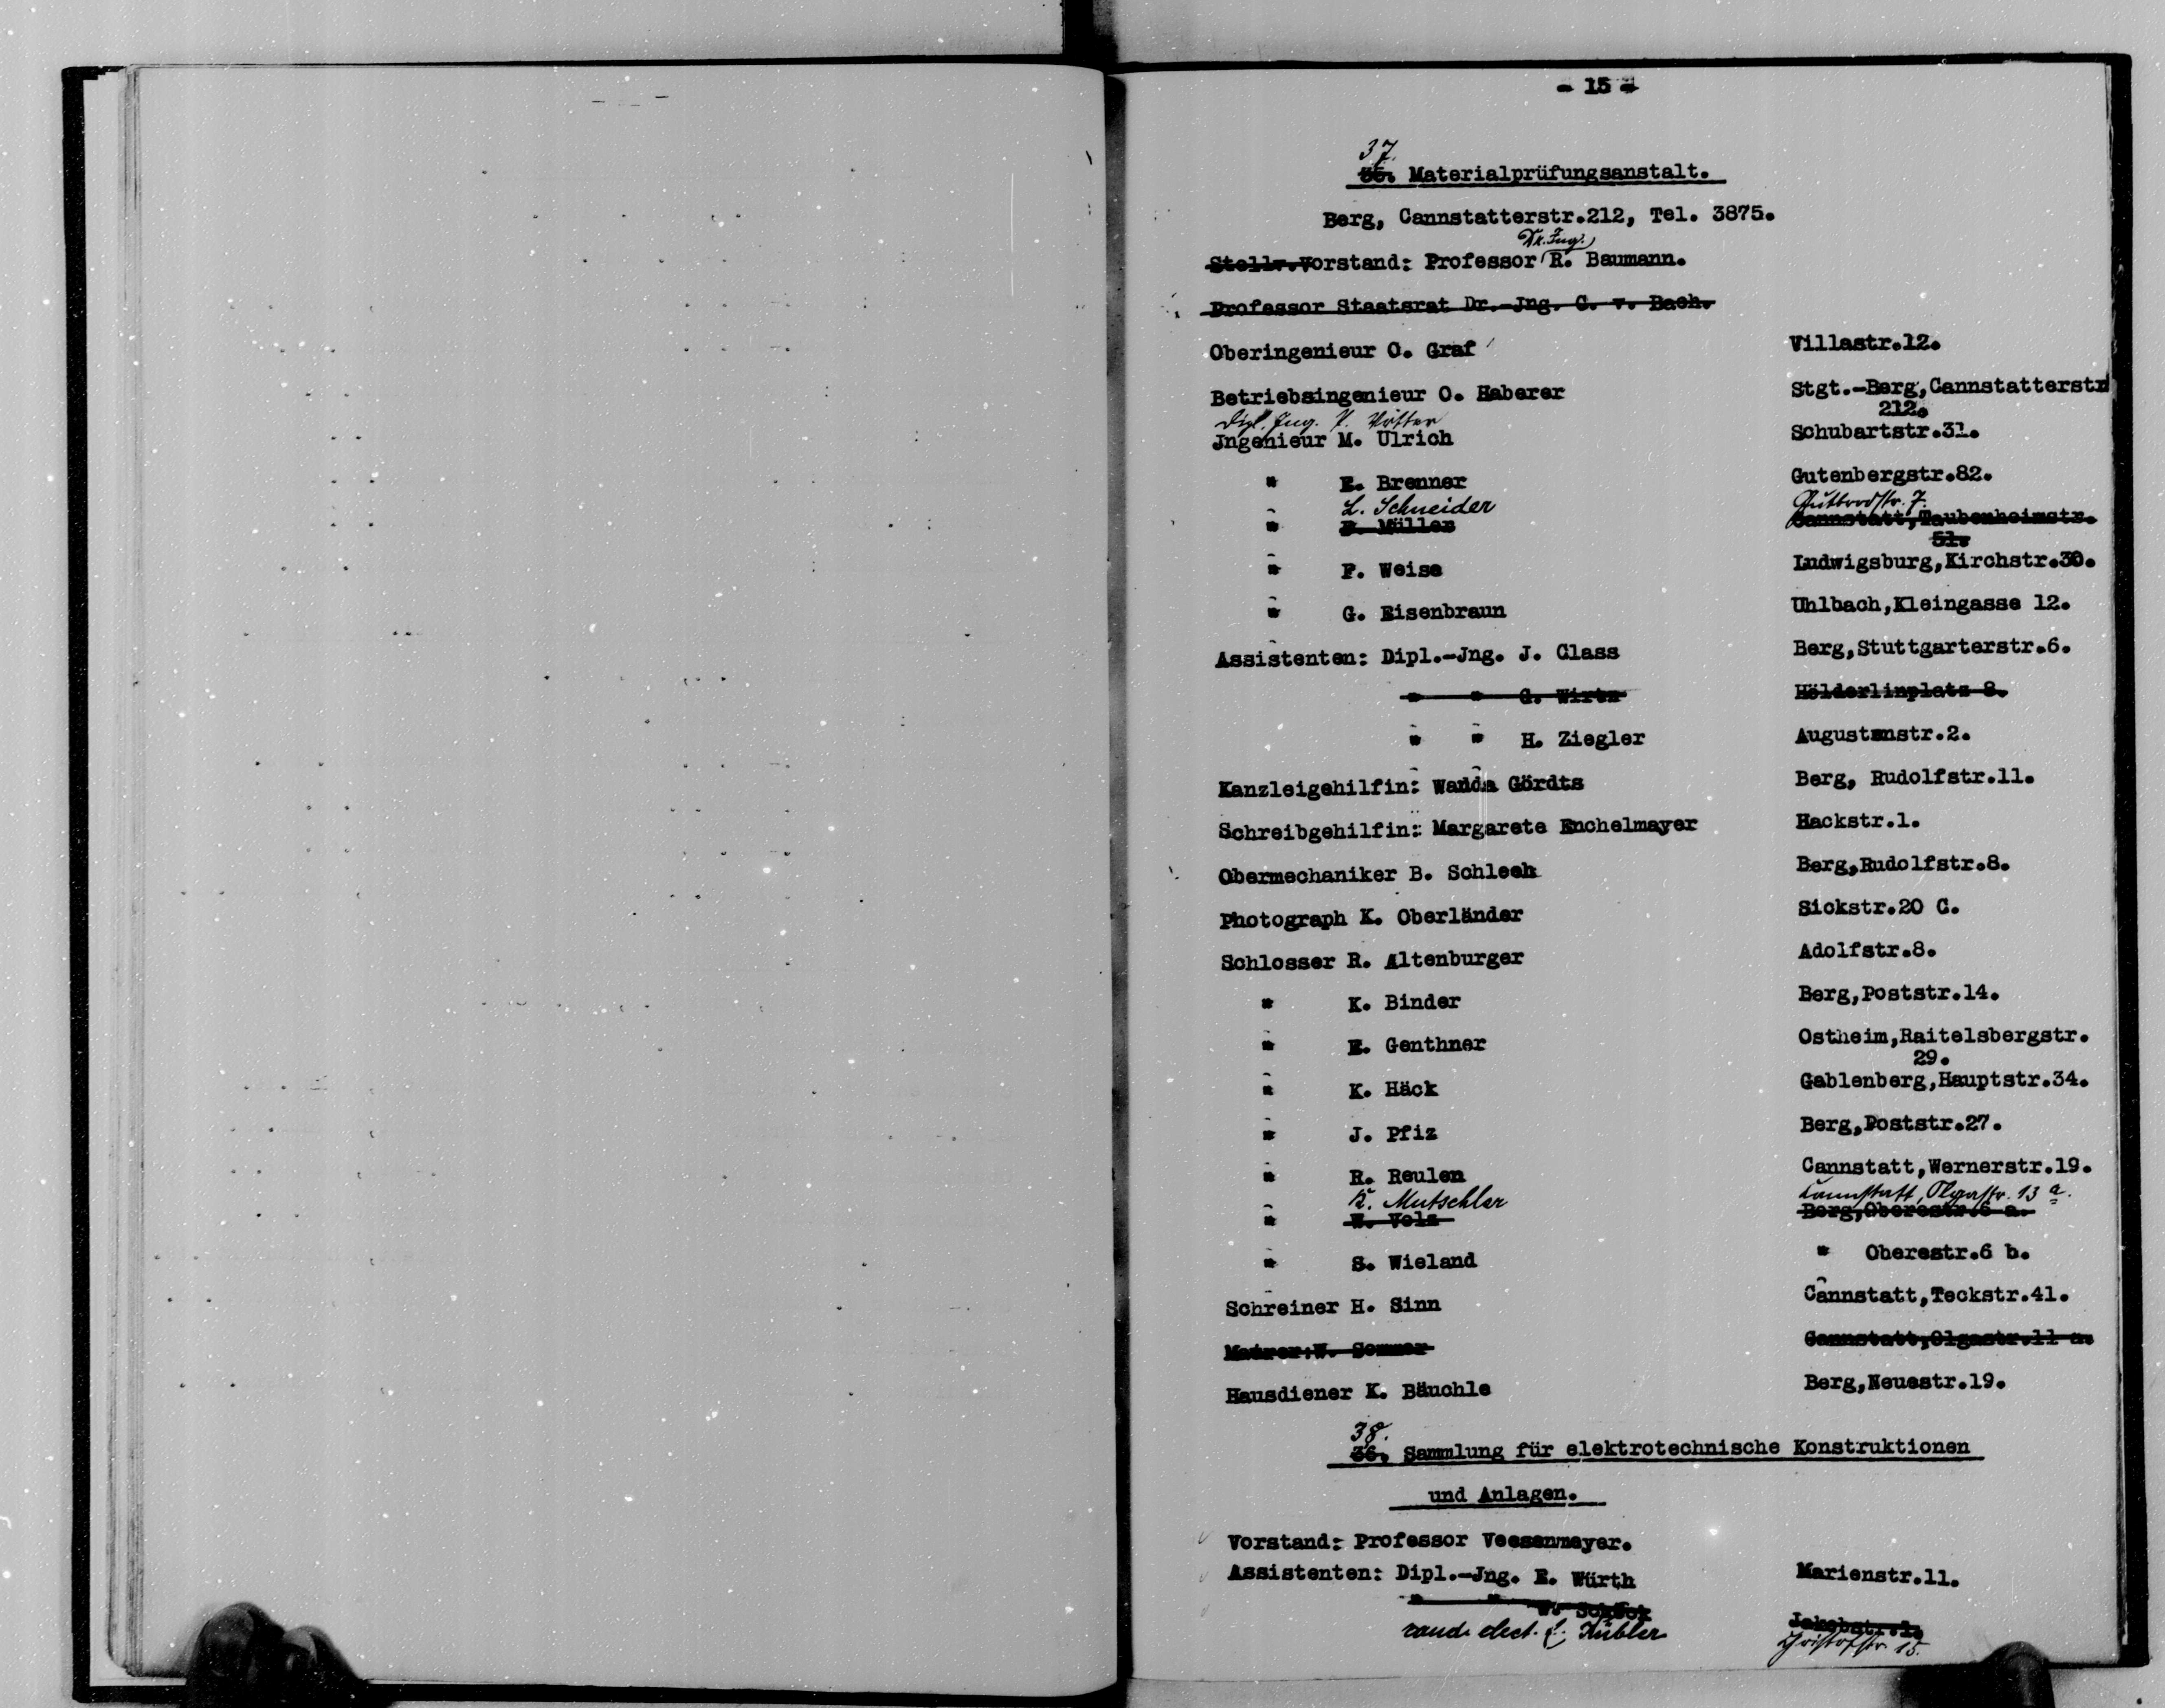 - 15 -
37.
35. Materialprüfungsanstalt.
Berg, Cannstatterstr.212, Tel. 3875.
Dr. Ing.
Stellv.Vorstand: Professor R. Baumann.
Professor Staatsrat Dr.-Jng. C. v. Bach.
Oberingenieur O. Graf Villastr.12.
Betriebsingenieur O. Haberer Stgt.-Berg,Cannstatterstr
212.
Dipl. Ing. P.
Jngenieur M. Ulrich Schubartstr.31.
" E. Brenner Gutenbergstr.82.
L. Schneider
" Müller Cannstatt,Taubenheimstr.
51.
" P. Weise Ludwigsburg,Kirchstr.30.
" G. Eisenbraun Uhlbach,Kleingasse 12.
Assistenten: Dipl.-Jng. J. Class Berg,Stuttgarterstr.6.
" " G. Wirtz Hölderlinplatz 8.
" " H. Ziegler Augustenstr.2.
Kanzleigehilfin: Wanda Gördts Berg, Rudolfstr.11.
Schreibgehilfin: Margarete Enchelmayer Hackstr.1.
Obermechaniker B. Schleeh Berg,Rudolfstr.8.
Photograph K. Oberländer Sickstr.20 C.
Schlosser R. Altenburger Adolfstr.8.
" K. Binder Berg,Poststr.14.
" E. Genthner Ostheim,Raitelsbergstr.
29.
" K. Häck Gablenberg,Hauptstr.34.
" J. Pfiz Berg,Poststr.27.
" R. Reulen Cannstatt,Wernerstr.19.
K. Mutschler Cannstatt, Olgastr. 13 a.
" W. Volz Berg,Oberestr.6 a.
" S. Wieland " Oberestr.6 b.
Schreiner H. Sinn Cannstatt,Teckstr.41.
Maurer:W. Sommer Cannstatt,Olgastr.11 a.
Hausdiener K. Bäuchle Berg,Neuestr.19.
38.
36. Sammlung für elektrotechnische Konstruktionen
und Anlagen.
Vorstand: Professor Veesenmeyer.
Assistenten: Dipl.-Jng. E. Würth Marienstr.11.
" " W. Jakobstr.1.
cand. elect. Kübler Christofstr. 15.